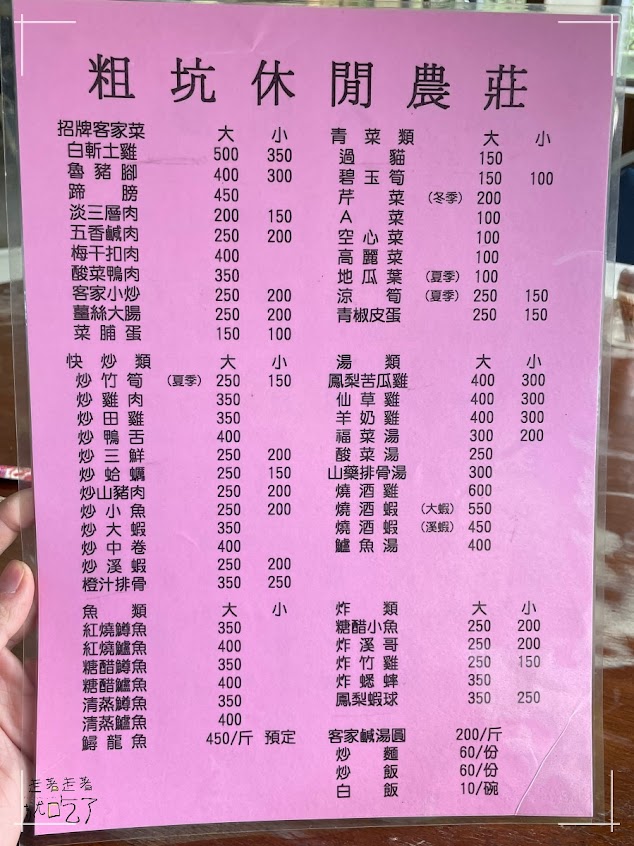 粗坑休閒農莊
招牌客家菜 大 小
白斬土雞 500 350
魯豬腳 400 300
蹄膀 450
淡三層肉 200 150
五香鹹肉 250 200
梅干扣肉 400
酸菜鴨肉 350
客家小炒 250 200
薑絲大腸 250 200
菜脯蛋 150 100
快炒類 大 小
炒竹筍 (夏季) 250 150
炒雞肉 350
炒田雞 350
炒鴨舌 400
炒三鮮 250 200
炒蛤蠣 250 150
炒山豬肉 250 200
炒小魚 250 200
炒大蝦 350
炒中卷 400
炒溪蝦 250 200
橙汁排骨 350 250
魚類 大 小
紅燒鱒魚 350
紅燒鱸魚 400
糖醋鱒魚 350
糖醋鱸魚 400
清蒸鱒魚 350
清蒸鱸魚 400
鱘龍魚 450/斤 預定
青菜類 大 小
過貓 150
碧玉筍 150 100
芹菜 (冬季) 200
A菜 100
空心菜 100
高麗菜 100
地瓜葉 (夏季) 100
涼筍 (夏季) 250 150
青椒皮蛋 250 150
湯類 大 小
鳳梨苦瓜雞 400 300
仙草雞 400 300
羊奶雞 400 300
福菜湯 300 200
酸菜湯 250
山藥排骨湯 300
燒酒雞 600
燒酒蝦 (大蝦) 550
燒酒蝦 (溪蝦) 450
鱸魚湯 400
炸類 大 小
糖醋小魚 250 200
炸溪哥 250 200
炸竹雞 250 150
炸蟋蟀 350
鳳梨蝦球 350 250
客家鹹湯圓 200/斤
炒麵 60/份
炒飯 60/份
白飯 10/碗
走著走著
就吃了